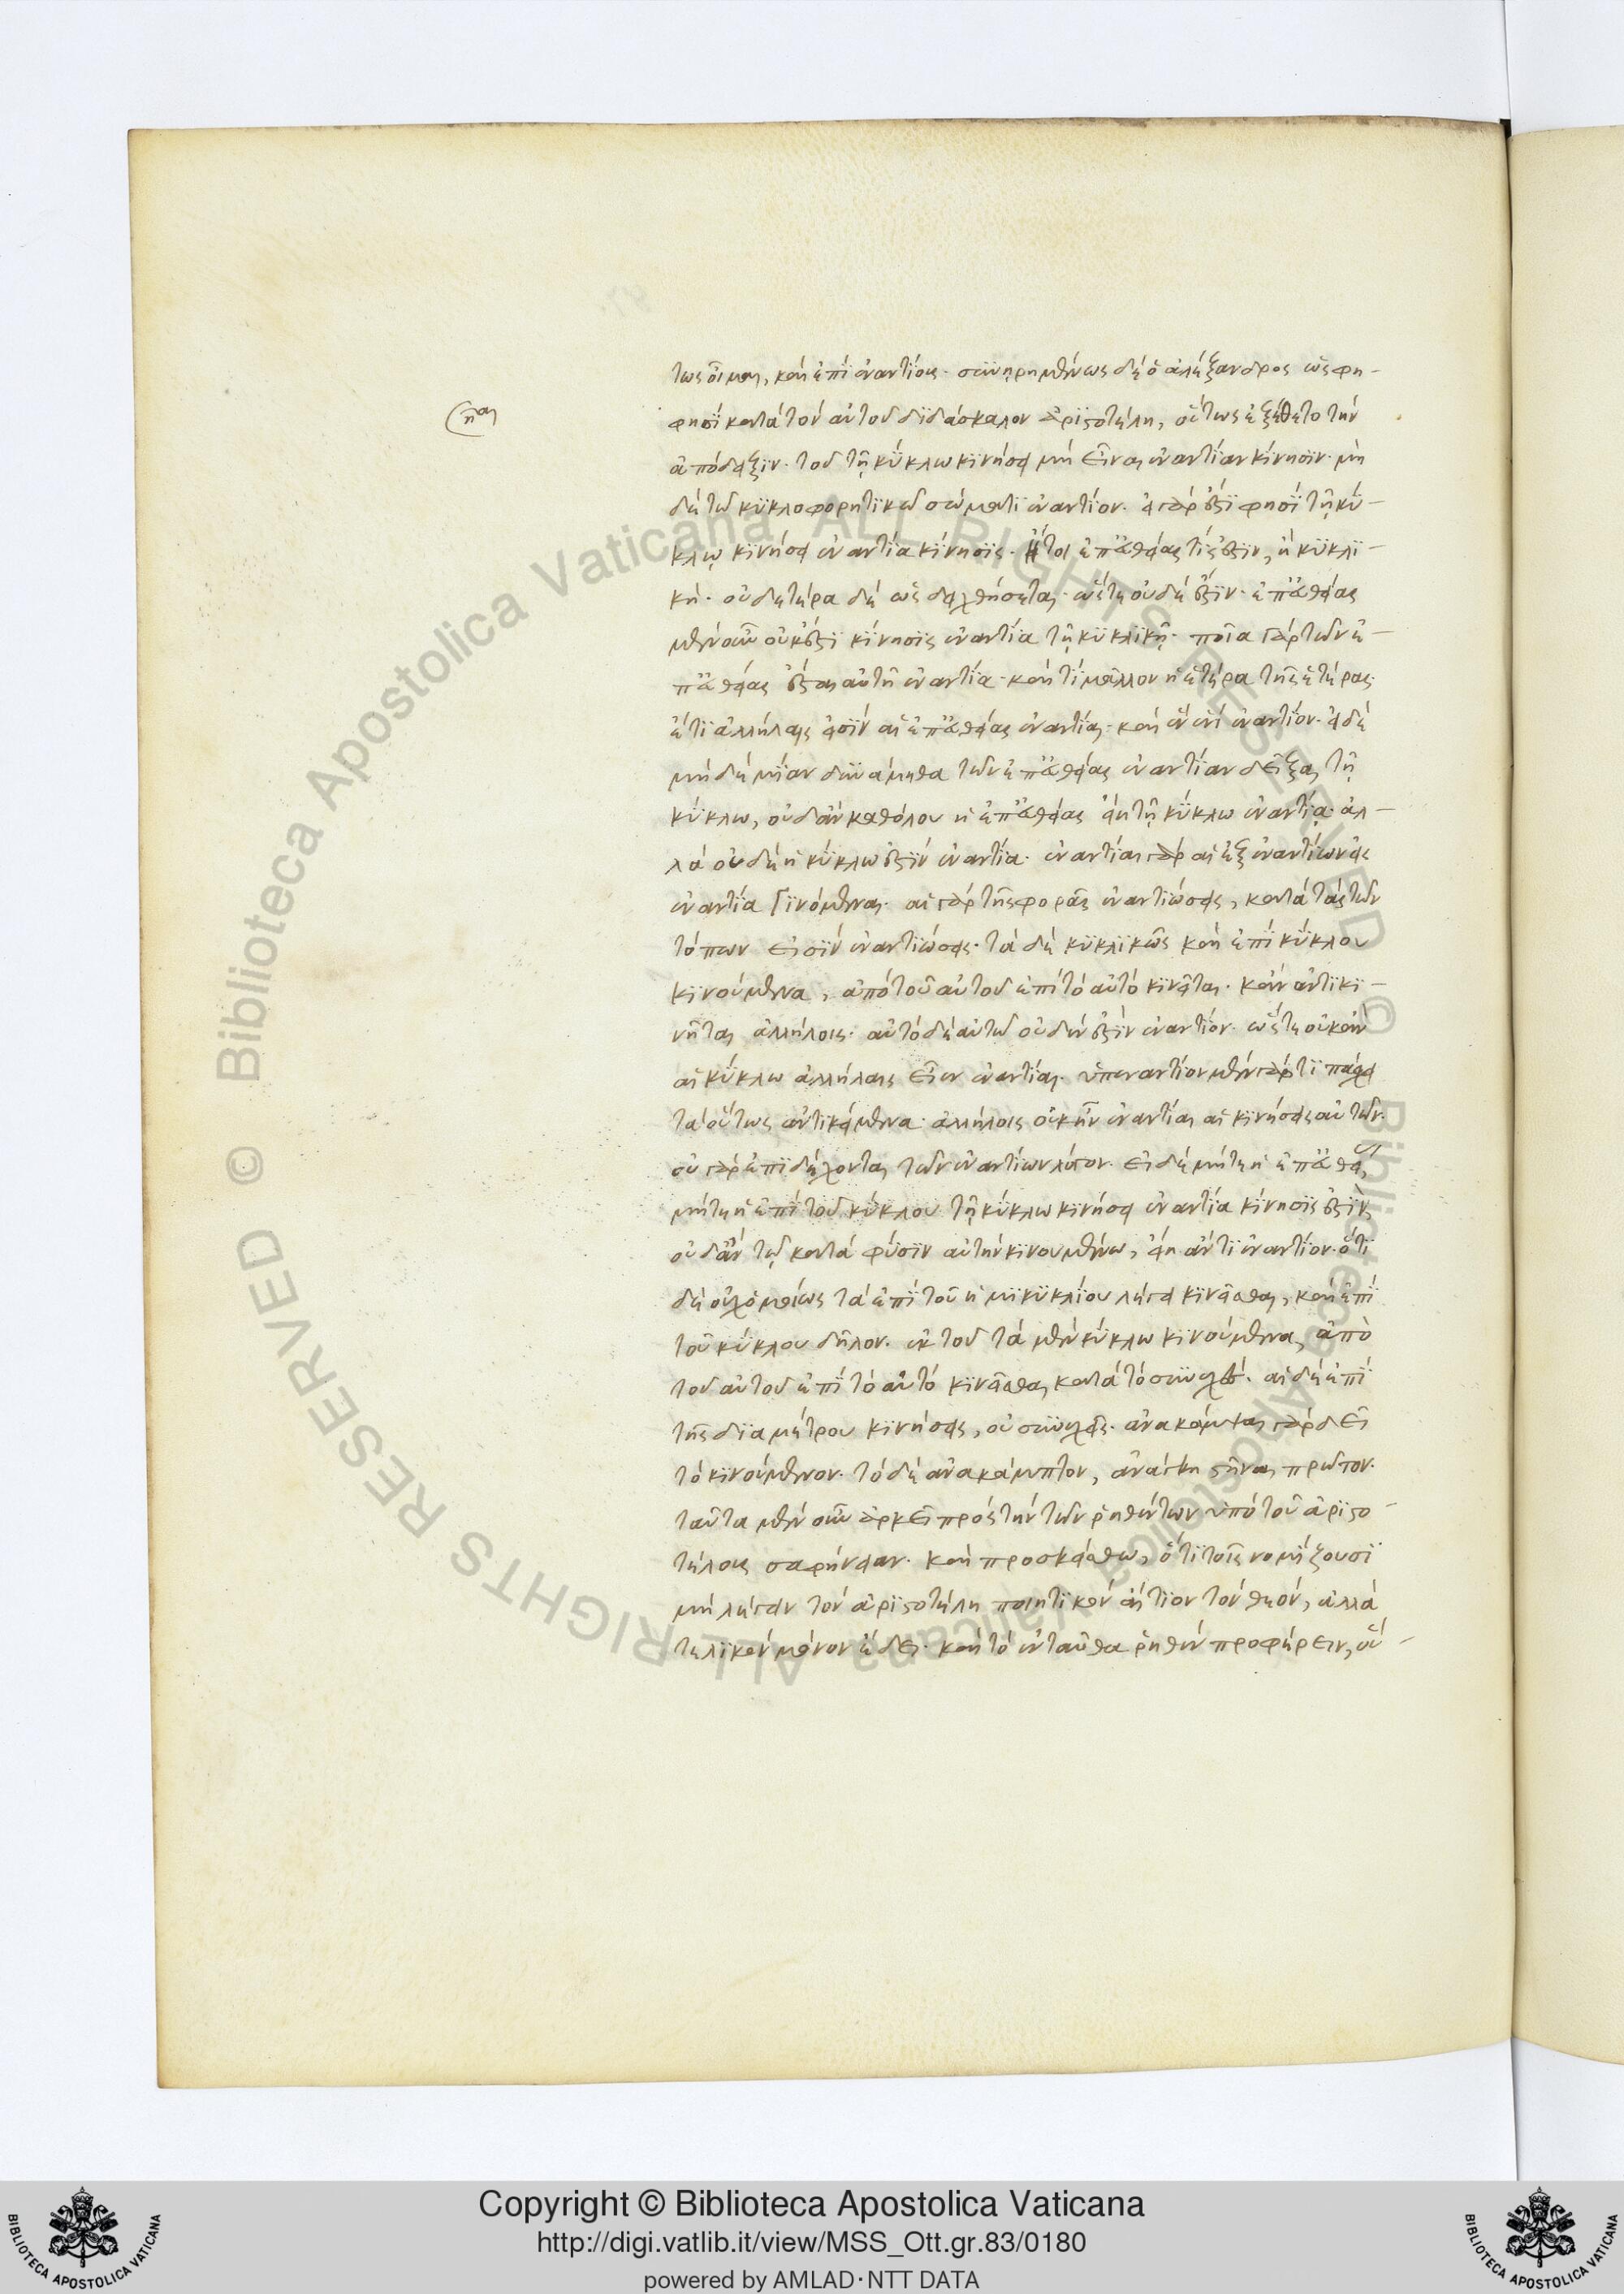 τως οἶμαι, καὶ ἐπὶ ἐναντίοις. συνῃρημένως δὲ ὁ ἀλέξανδρος ὥσφη-
φησὶ κατὰ τὸν αὐτοῦ διδάσκαλον ἀριστοτέλη, οὕτως ἐξέθετο τὴν
ἀπόδειξιν. τοῦ τῇ κύκλω κινήσει μὴ εἶναι ἐναντίαν κίνησιν. μὴ
δὲ τῶ κυκλοφορητικῶ σώματι ἐναντίον. εἰ γάρ ἐστι φησὶ τῇ κύ-
κλῳ κινήσει ἐναντία κίνησις. ἤτοι ἐπ' εὐθείας τίς ἐστιν, ἢ κυκλι-
κή. οὐδετέρα δὲ ὡς δειχθήσεται. ὥστε οὐδέ ἐστιν. ἐπ' εὐθείας
μὲν οὖν οὐκ ἔστι κίνησις ἐναντία τῇ κυκλικῇ. ποία γὰρ τῶν ἐ-
π' εὐθείας ἔσται αὐτῇ ἐναντία. καὶ τί μᾶλλον ἡ ἑτέρα τῆς ἑτέρας.
ἔτι ἀλλήλαις εἰσὶν αἱ ἐπ' εὐθείας ἐναντίαι. καὶ ἓν ἑνὶ ἐναντίον. εἰ δὲ
μὴ δὲ μίαν δυνάμεθα τῶν ἐπ' εὐθείας ἐναντίαν δεῖξαι τῇ
κύκλω, οὐδ' ἂν καθόλου ἡ ἐπ' εὐθείας εἴη τῇ κύκλω ἐναντία. ἀλ-
λὰ οὐδὲ ἡ κύκλω ἐστὶν ἐναντία. ἐναντίαι γὰρ αἱ ἐξ ἐναντίων εἰς
ἐναντία γινόμεναι. αἱ γὰρ τῆς φορᾶς ἐναντιώσεις, κατὰ τὰς τῶν
τόπων εἰσὶν ἐναντιώσεις. τὰ δὲ κυκλικῶς καὶ ἐπὶ κύκλου
κινούμενα, ἀπὸ τοῦ αὐτοῦ ἐπὶ τὸ αὐτὸ κινεῖται. κἂν ἀντικι-
νῆται ἀλλήλοις. αὐτὸ δὲ αὐτῶ οὐδέν ἐστιν ἐναντίον. ὥστε οὐκ ἂν
αἱ κύκλω ἀλλήλαις εἶεν ἐναντίαι. ὑπεναντίον μὲν γάρ τι πάσχει
τὰ οὕτως ἀντικείμενα ἀλλήλοις οὐκ ἦν ἐναντίαι αἱ κινήσεις αὐτῶν.
οὐ γὰρ ἐπιδέχονται τῶν ἐναντίων λόγον. εἰ δὲ μήτε ἡ ἐπ' εὐθείας,
μήτε ἡ ἐπὶ τοῦ κύκλου τῇ κύκλω κινήσει ἐναντία κίνησίς ἐστιν,
οὐδ' ἂν τῷ κατὰ φύσιν αὐτὴν κινουμένω, εἴη ἄν τι ἐναντίον. ὅτι
δὲ οὐχ ὁμοίως τὰ ἐπὶ τοῦ ἡμικυκλίου λέγει κινεῖσθαι, καὶ ἐπὶ
τοῦ κύκλου δῆλον. ἐκ τοῦ τὰ μὲν κύκλω κινούμενα, ἀπὸ
τοῦ αὐτοῦ ἐπὶ τὸ αὐτὸ κινεῖσθαι κατὰ τὸ συνεχές. αἱ δὲ ἐπὶ
τῆς διαμέτρου κινήσεις, οὐ συνεχεῖς. ἀνακάμψαι γὰρ δεῖ
τὸ κινούμενον. τὸ δὲ ἀνακάμπτον, ἀνάγκη στῆναι πρῶτον.
ταῦτα μὲν οὖν ἀρκεῖ πρὸς τὴν τῶν ῥηθέντων ὑπὸ τοῦ ἀριστο-
τέλους σαφήνειαν. καὶ προσκείσθω, ὅτι τοῖς νομίζουσι
μὴ λέγειν τὸν ἀριστοτέλη ποιητικὸν αἴτιον τὸν θεὸν, ἀλλὰ
τελικὸν μόνον ἔδει. καὶ τὸ ἐνταῦθα ῥηθὲν προφέρειν, οὐ-